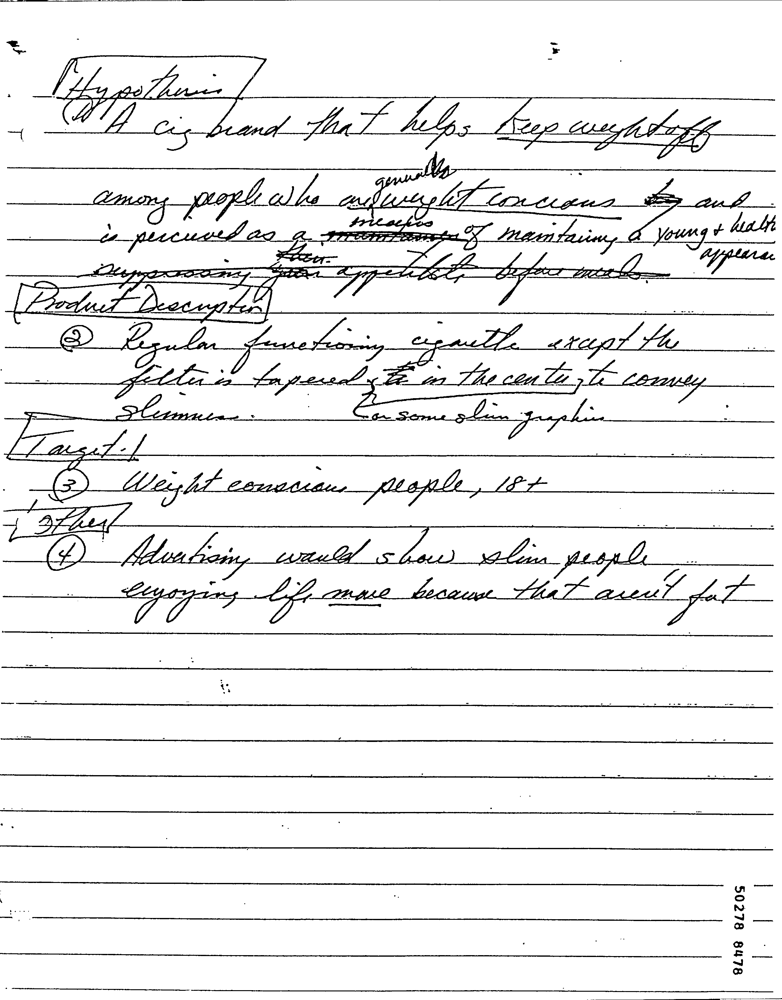 Hypothesis
(1) A cig brand that helps keep weight off
generally
among people who are weight concious by and
means
is percieved as a maintainer of maintaining a young + health
appearan
their
suppressing your appetitite before meals.
Product Description
(2) Regular functioning cigarette except the
filter is tapered to in the center, to convey
slimness. or some slim graphics
Target!
(3) Weight conscious people, 18+
Other
(4) Advertising would show slim people
enjoying life more because that aren't fat
50278 8478